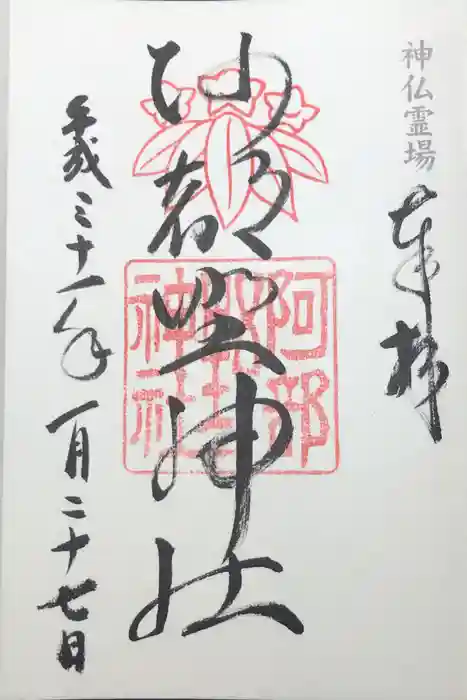 神仏霊場
奉拝
阿部埜神社
阿部埜神社
平成三十一年一月二十七日